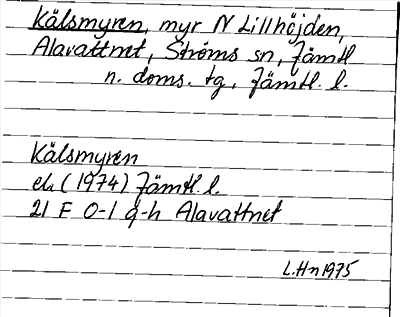 Kälsmyren, myr N Lillhöjden,
Alavattnet, Ströms sn, Jämtl
n. doms. tg, Jämtl. l.
Kälsmyren
ek (1974) Jämtl. l.
21 F 0-1 g-h Alavattnet
L.Hn 1975